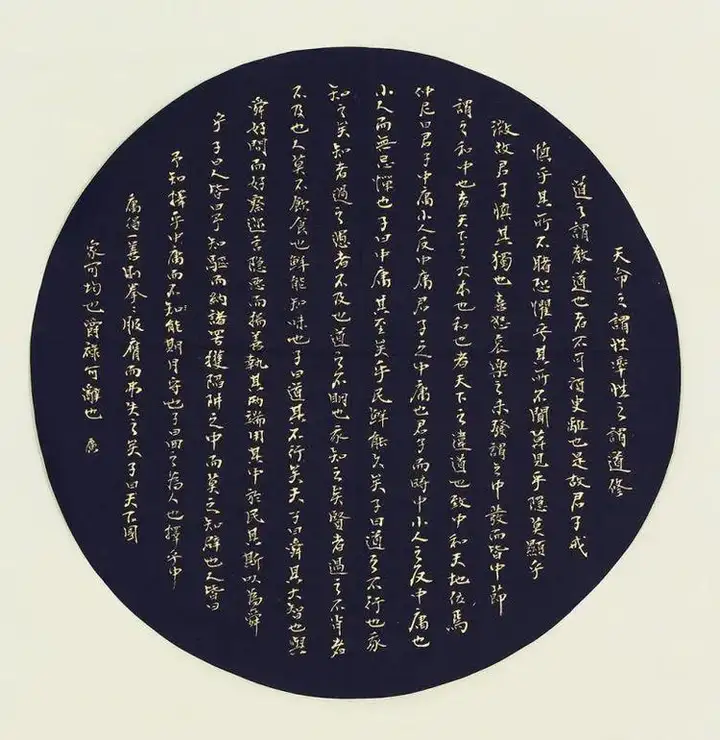 天命之謂性率性之謂道修
道之謂教道也者不可須臾離也是故君子戒
慎乎其所不睹恐懼乎其所不聞莫見乎隱莫顯乎
微故君子慎其獨也喜怒哀樂之未發謂之中發而皆中節
謂之和中也者天下之大本也和也者天下之達道也致中和天地位焉
仲尼曰君子中庸小人反中庸君子之中庸也君子而時中小人之反中庸也
小人而無忌憚也子曰中庸其至矣乎民鮮能久矣子曰道之不行也我
知之矣知者過之愚者不及也道之不明也我知之矣賢者過之不肖者
不及也人莫不飲食也鮮能知味也子曰道其不行矣夫子曰舜其大智也與
舜好問而好察邇言隱惡而揚善執其兩端用其中於民其斯以為舜
乎子曰人皆曰予知驅而納諸罟擭陷阱之中而莫之知辟也人皆曰
予知擇乎中庸而不知能期月守也子曰回之為人也擇乎中
庸得一善則拳々服膺而弗失之矣子曰天下國
家可均也爵祿可離也